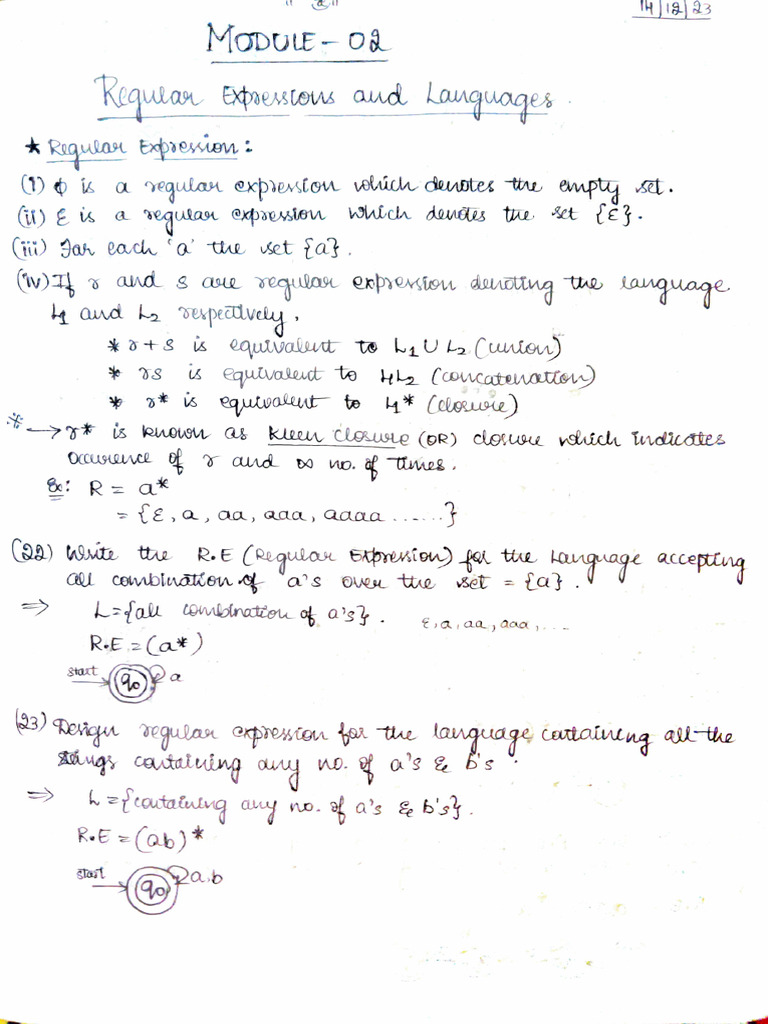 14/12/23
MODULE - 02
Regular Expressions and Languages.
★ Regular Expression:
(i) ϕ is a regular expression which denotes the empty set.
(ii) ε is a regular expression which denotes the set {ε}.
(iii) For each 'a' the set {a}.
(iv) If r and s are regular expression denoting the language
L1 and L2 respectively,
* r+s is equivalent to L1 U L2 (union)
* rs is equivalent to L1L2 (concatenation)
* r* is equivalent to L1* (closure)
※ → r* is known as kleen closure (OR) closure which indicates
occurence of r and ∞ no. of times.
Ex: R = a*
= {ε, a, aa, aaa, aaaa ......}
(22) Write the R.E (Regular Expression) for the Language accepting
all combination of a's over the set = {a}.
⇒ L={all combination of a's}. ε, a, aa, aaa, ...
R.E = (a*)
start q0 a
(23) Design regular expression for the language containing all the
stings containing any no. of a's & b's.
⇒ L={containing any no. of a's & b's}.
R.E = (ab)*
start q0 a.b